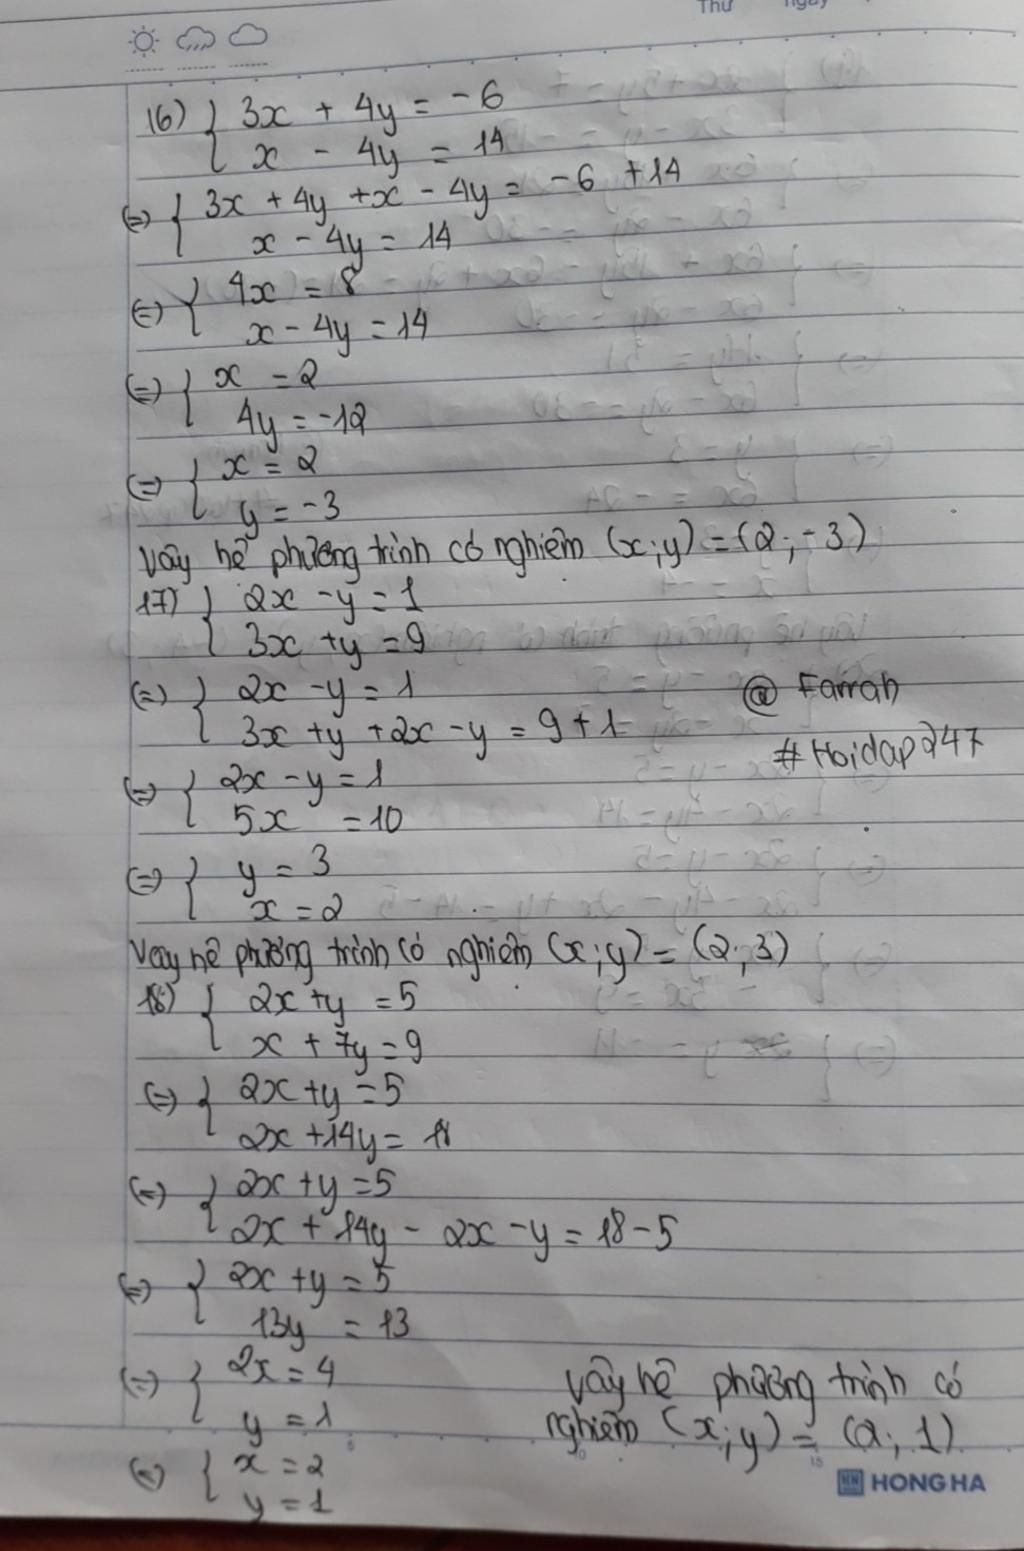 Thứ ngày
16) { 3x + 4y = -6
x - 4y = 14
(=) { 3x + 4y + x - 4y = -6 + 14
x - 4y = 14
(=) { 4x = 8
x - 4y = 14
(=) { x = 2
4y = -12
(=) { x = 2
y = -3
Vậy hệ phương trình có nghiệm (x;y) = (2;-3)
17) { 2x - y = 1
3x + y = 9
(=) { 2x - y = 1
3x + y + 2x - y = 9 + 1
@ Farrah
#Hoidap247
(=) { 2x - y = 1
5x = 10
(=) { y = 3
x = 2
Vậy hệ phương trình có nghiệm (x;y) = (2;3)
18) { 2x + y = 5
x + 7y = 9
(=) { 2x + y = 5
2x + 14y = 18
(=) { 2x + y = 5
2x + 14y - 2x - y = 18 - 5
(=) { 2x + y = 5
13y = 13
(=) { 2x = 4
y = 1
(=) { x = 2
y = 1
Vậy hệ phương trình có
nghiệm (x;y) = (2;1)
HONG HA